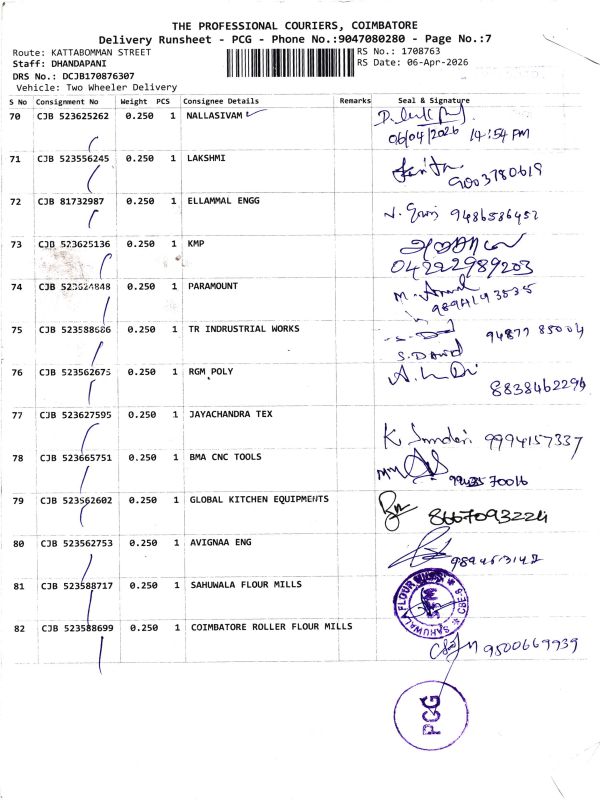 THE PROFESSIONAL COURIERS, COIMBATORE
Delivery Runsheet - PCG - Phone No.:9047080280 - Page No.:7
Route: KATTABOMMAN STREET
RS No.: 1708763
Staff: DHANDAPANI
RS Date: 06-Apr-2026
DRS No.: DCJB170876307
Vehicle: Two Wheeler Delivery
S No Consignment No Weight PCS Consignee Details Remarks Seal & Signature
70 CJB 523625262 0.250 1 NALLASIVAM
06/04/2026 14:54 PM
71 CJB 523556245 0.250 1 LAKSHMI
9003780619
72 CJB 81732987 0.250 1 ELLAMMAL ENGG
9486586452
73 CJB 523625136 0.250 1 KMP
04222989203
74 CJB 523624848 0.250 1 PARAMOUNT
75 CJB 523588686 0.250 1 TR INDRUSTRIAL WORKS
94877 85004
S. David
76 CJB 523562675 0.250 1 RGM POLY
8838462296
77 CJB 523627595 0.250 1 JAYACHANDRA TEX
K Sundari 9994157337
78 CJB 523665751 0.250 1 BMA CNC TOOLS
79 CJB 523562602 0.250 1 GLOBAL KITCHEN EQUIPMENTS
8667093224
80 CJB 523562753 0.250 1 AVIGNAA ENG
81 CJB 523588717 0.250 1 SAHUWALA FLOUR MILLS
SAHUWALA FLOUR MILLS * CBE-9 *
82 CJB 523588699 0.250 1 COIMBATORE ROLLER FLOUR MILLS
9500669939
PCG